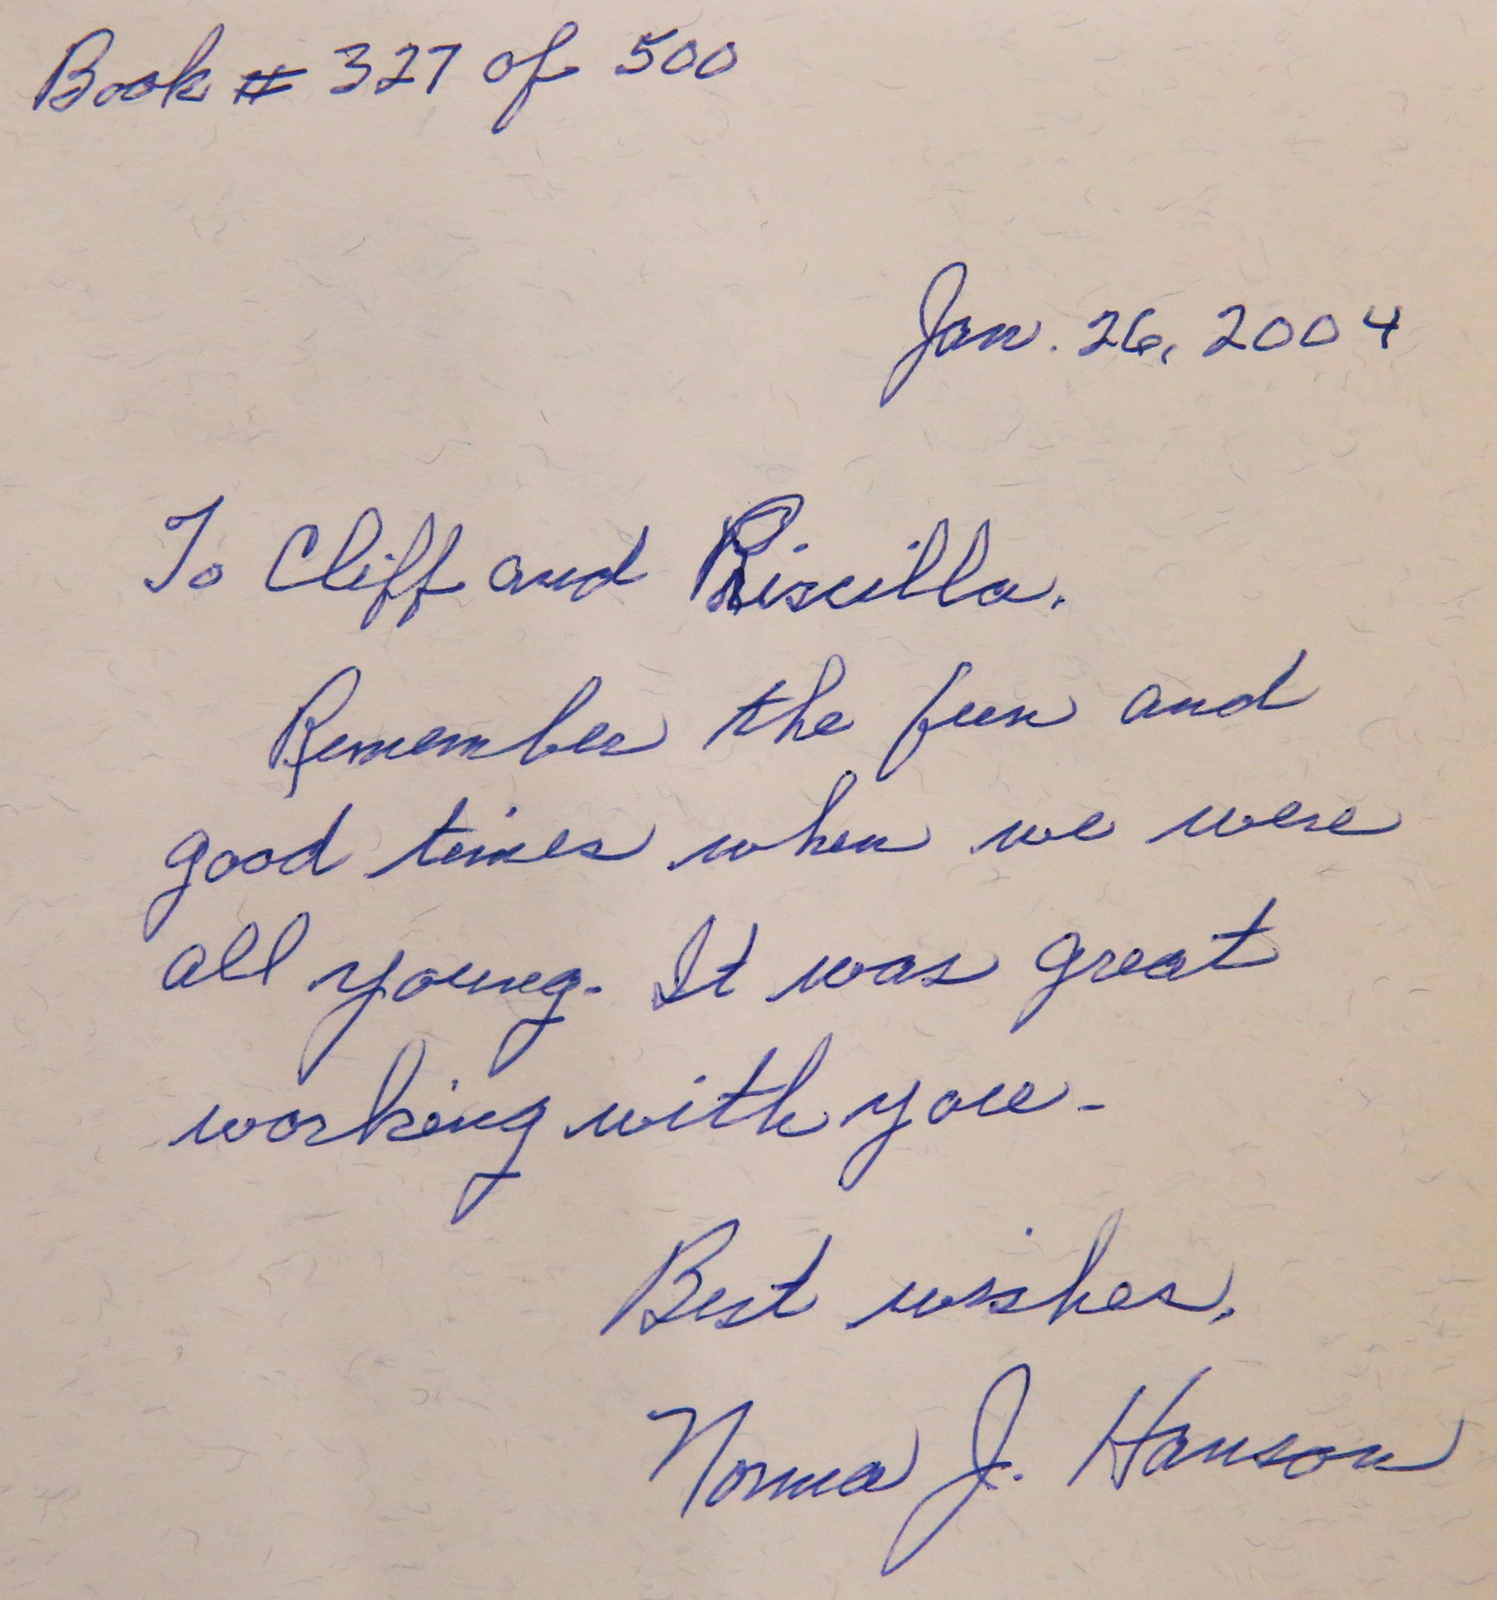 Book # 327 of 500
Jan. 26, 2004
To Cliff and Priscilla.
Remember the fun and
good times when we were
all young. It was great
working with you.
Best wishes,
Norma J. Hanson